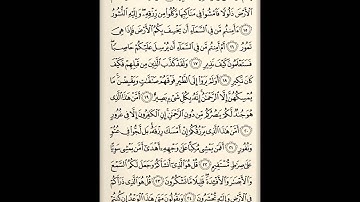 الْأَرْضَ ذَلُولًا فَامْشُوا فِي مَنَاكِبِهَا وَكُلُوا مِن رِّزْقِهِ ۖ وَإِلَيْهِ النُّشُورُ
﴿١٥﴾ ءَأَمِنتُم مَّن فِي السَّمَاءِ أَن يَخْسِفَ بِكُمُ الْأَرْضَ فَإِذَا هِيَ
تَمُورُ ﴿١٦﴾ أَمْ أَمِنتُم مَّن فِي السَّمَاءِ أَن يُرْسِلَ عَلَيْكُمْ حَاصِبًا ۖ
فَسَتَعْلَمُونَ كَيْفَ نَذِيرِ ﴿١٧﴾ وَلَقَدْ كَذَّبَ الَّذِينَ مِن قَبْلِهِمْ فَكَيْفَ
كَانَ نَكِيرِ ﴿١٨﴾ أَوَلَمْ يَرَوْا إِلَى الطَّيْرِ فَوْقَهُمْ صَافَّاتٍ وَيَقْبِضْنَ ۚ مَا
يُمْسِكُهُنَّ إِلَّا الرَّحْمَٰنُ ۚ إِنَّهُ بِكُلِّ شَيْءٍ بَصِيرٌ ﴿١٩﴾ أَمَّنْ هَٰذَا الَّذِي
هُوَ جُندٌ لَّكُمْ يَنصُرُكُم مِّن دُونِ الرَّحْمَٰنِ ۚ إِنِ الْكَافِرُونَ إِلَّا فِي غُرُورٍ
﴿٢٠﴾ أَمَّنْ هَٰذَا الَّذِي يَرْزُقُكُمْ إِنْ أَمْسَكَ رِزْقَهُ ۚ بَل لَّجُّوا فِي عُتُوٍّ
وَنُفُورٍ ﴿٢١﴾ أَفَمَن يَمْشِي مُكِبًّا عَلَىٰ وَجْهِهِ أَهْدَىٰ أَمَّن يَمْشِي سَوِيًّا
عَلَىٰ صِرَاطٍ مُّسْتَقِيمٍ ﴿٢٢﴾ قُلْ هُوَ الَّذِي أَنشَأَكُمْ وَجَعَلَ لَكُمُ السَّمْعَ
وَالْأَبْصَارَ وَالْأَفْئِدَةَ ۖ قَلِيلًا مَّا تَشْكُرُونَ ﴿٢٣﴾ قُلْ هُوَ الَّذِي ذَرَأَكُمْ
فِي الْأَرْضِ وَإِلَيْهِ تُحْشَرُونَ ﴿٢٤﴾ وَيَقُولُونَ مَتَىٰ هَٰذَا الْوَعْدُ إِن كُنتُمْ